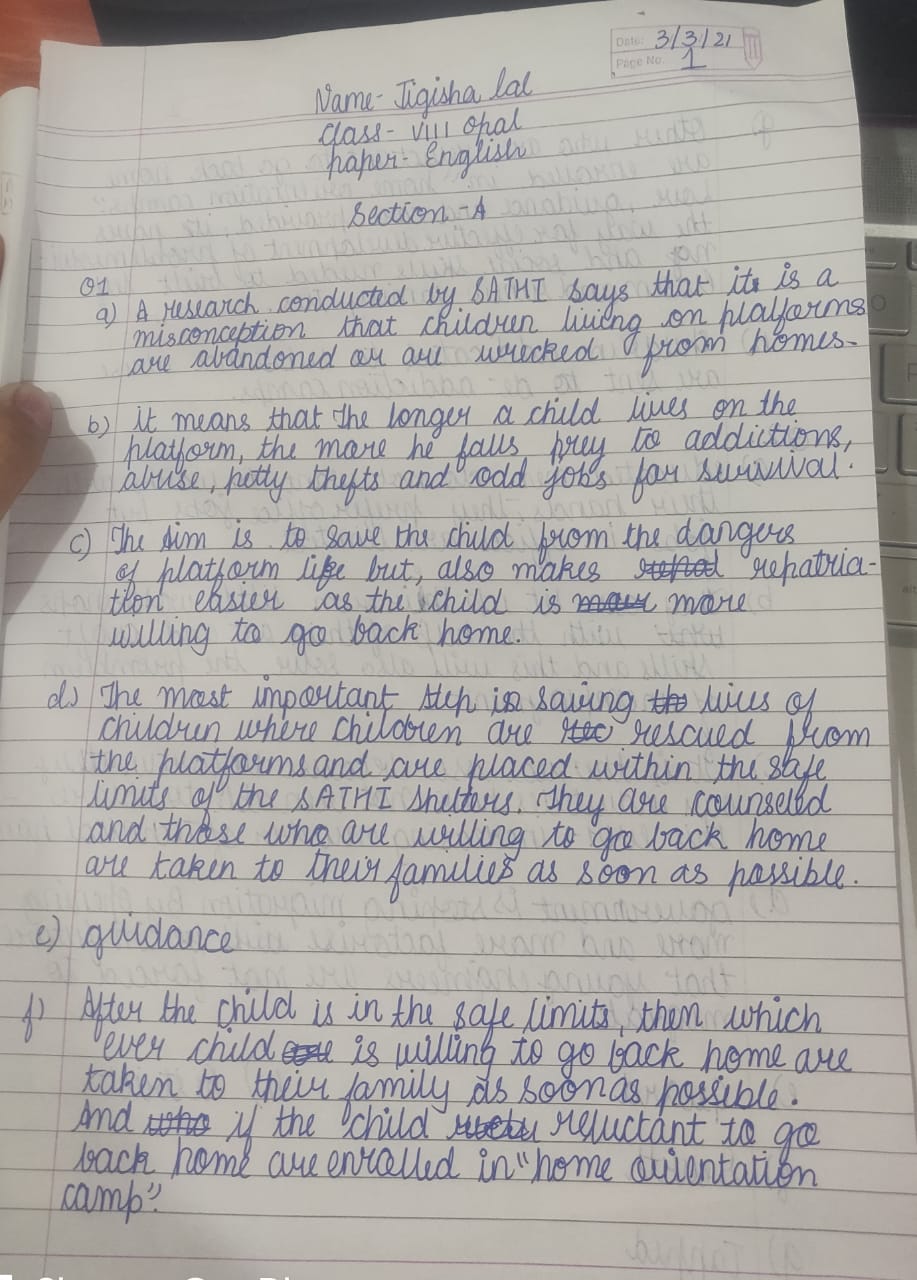 Date: 3/3/21
Page No. 1
Name- Jigisha lal
Class- VIII Opal
paper- English
Section-A
Q1
a) A research conducted by SATHI says that it is a
misconception that children living on platforms
are abandoned or are wrecked from homes.
b) it means that the longer a child lives on the
platform, the more he falls prey to addictions,
abuse, petty thefts and odd jobs for survival.
c) The aim is to save the child from the dangers
of platform life but, also makes repatria-
tion easier as the child is more
willing to go back home.
d) The most important step is saving lives of
children where children are rescued from
the platforms and are placed within the safe
limits of the SATHI shelters. They are counseled
and those who are willing to go back home
are taken to their families as soon as possible.
e) guidance
f) After the child is in the safe limits, then which
ever child is willing to go back home are
taken to their family as soon as possible.
And if the child reluctant to go
back home are enrolled in "home orientation
camp".